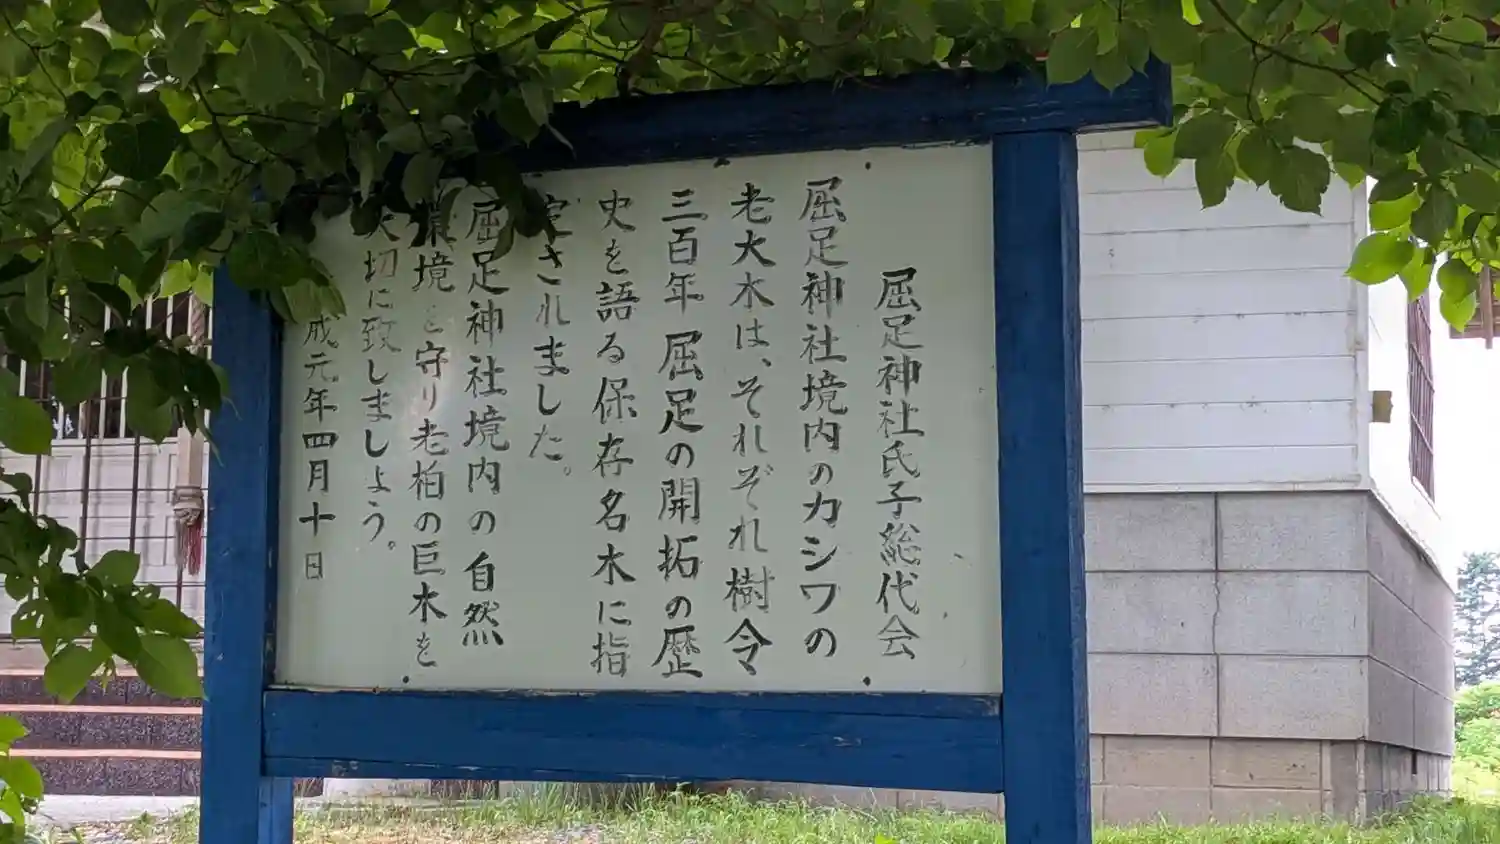 屈足神社氏子総代会
屈足神社境内のカシワの
老大木は、それぞれ樹令
三百年屈足の開拓の歴
史を語る保存名木に指
定されました。
屈足神社境内の自然
環境を守り老柏の巨木を
大切に致しましょう。
成元年四月十日